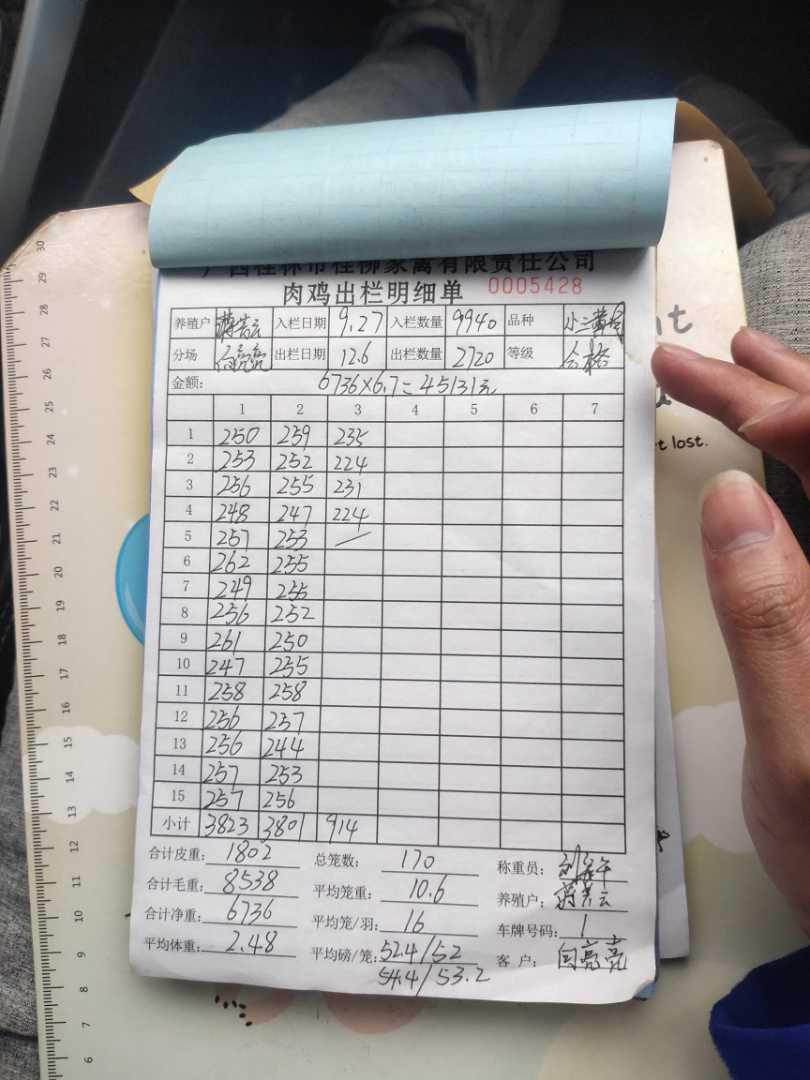 广西桂林市桂柳家禽有限责任公司
肉鸡出栏明细单 0005428
养殖户 蒋芳云 入栏日期 9.27 入栏数量 9940 品种 小三黄
分场 出栏日期 12.6 出栏数量 2720 等级 合格
金额: 6736×6.7=45131元
1 2 3 4 5 6 7
1 250 259 235
2 253 252 224
3 256 255 231
4 248 247 224
5 257 253 /
6 262 255
7 249 255
8 256 252
9 261 250
10 247 255
11 258 258
12 256 257
13 256 244
14 257 253
15 257 256
小计 3823 3801 914
合计皮重: 1802 总笼数: 170 称重员:
合计毛重: 8538 平均笼重: 10.6 养殖户: 蒋芳云
合计净重: 6736 平均笼/羽: 16 车牌号码: 1
平均体重: 2.48 平均磅/笼: 52.4/52 客户: 闫亮亮
54.4/53.2
t lost.
30
29
28
27
26
25
24
23
22
21
20
19
18
17
16
15
14
13
12
11
10
9
8
7
6